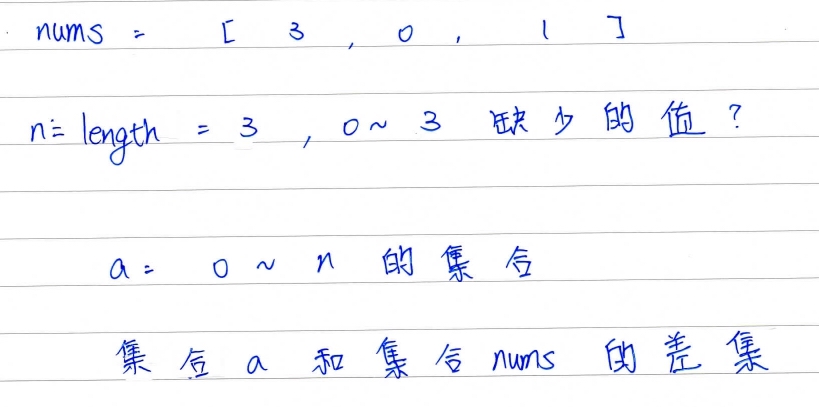 nums = [ 3 , 0 , 1 ]
n = length = 3 , 0 ~ 3 缺少的值?
a = 0 ~ n 的集合
集合 a 和集合 nums 的差集